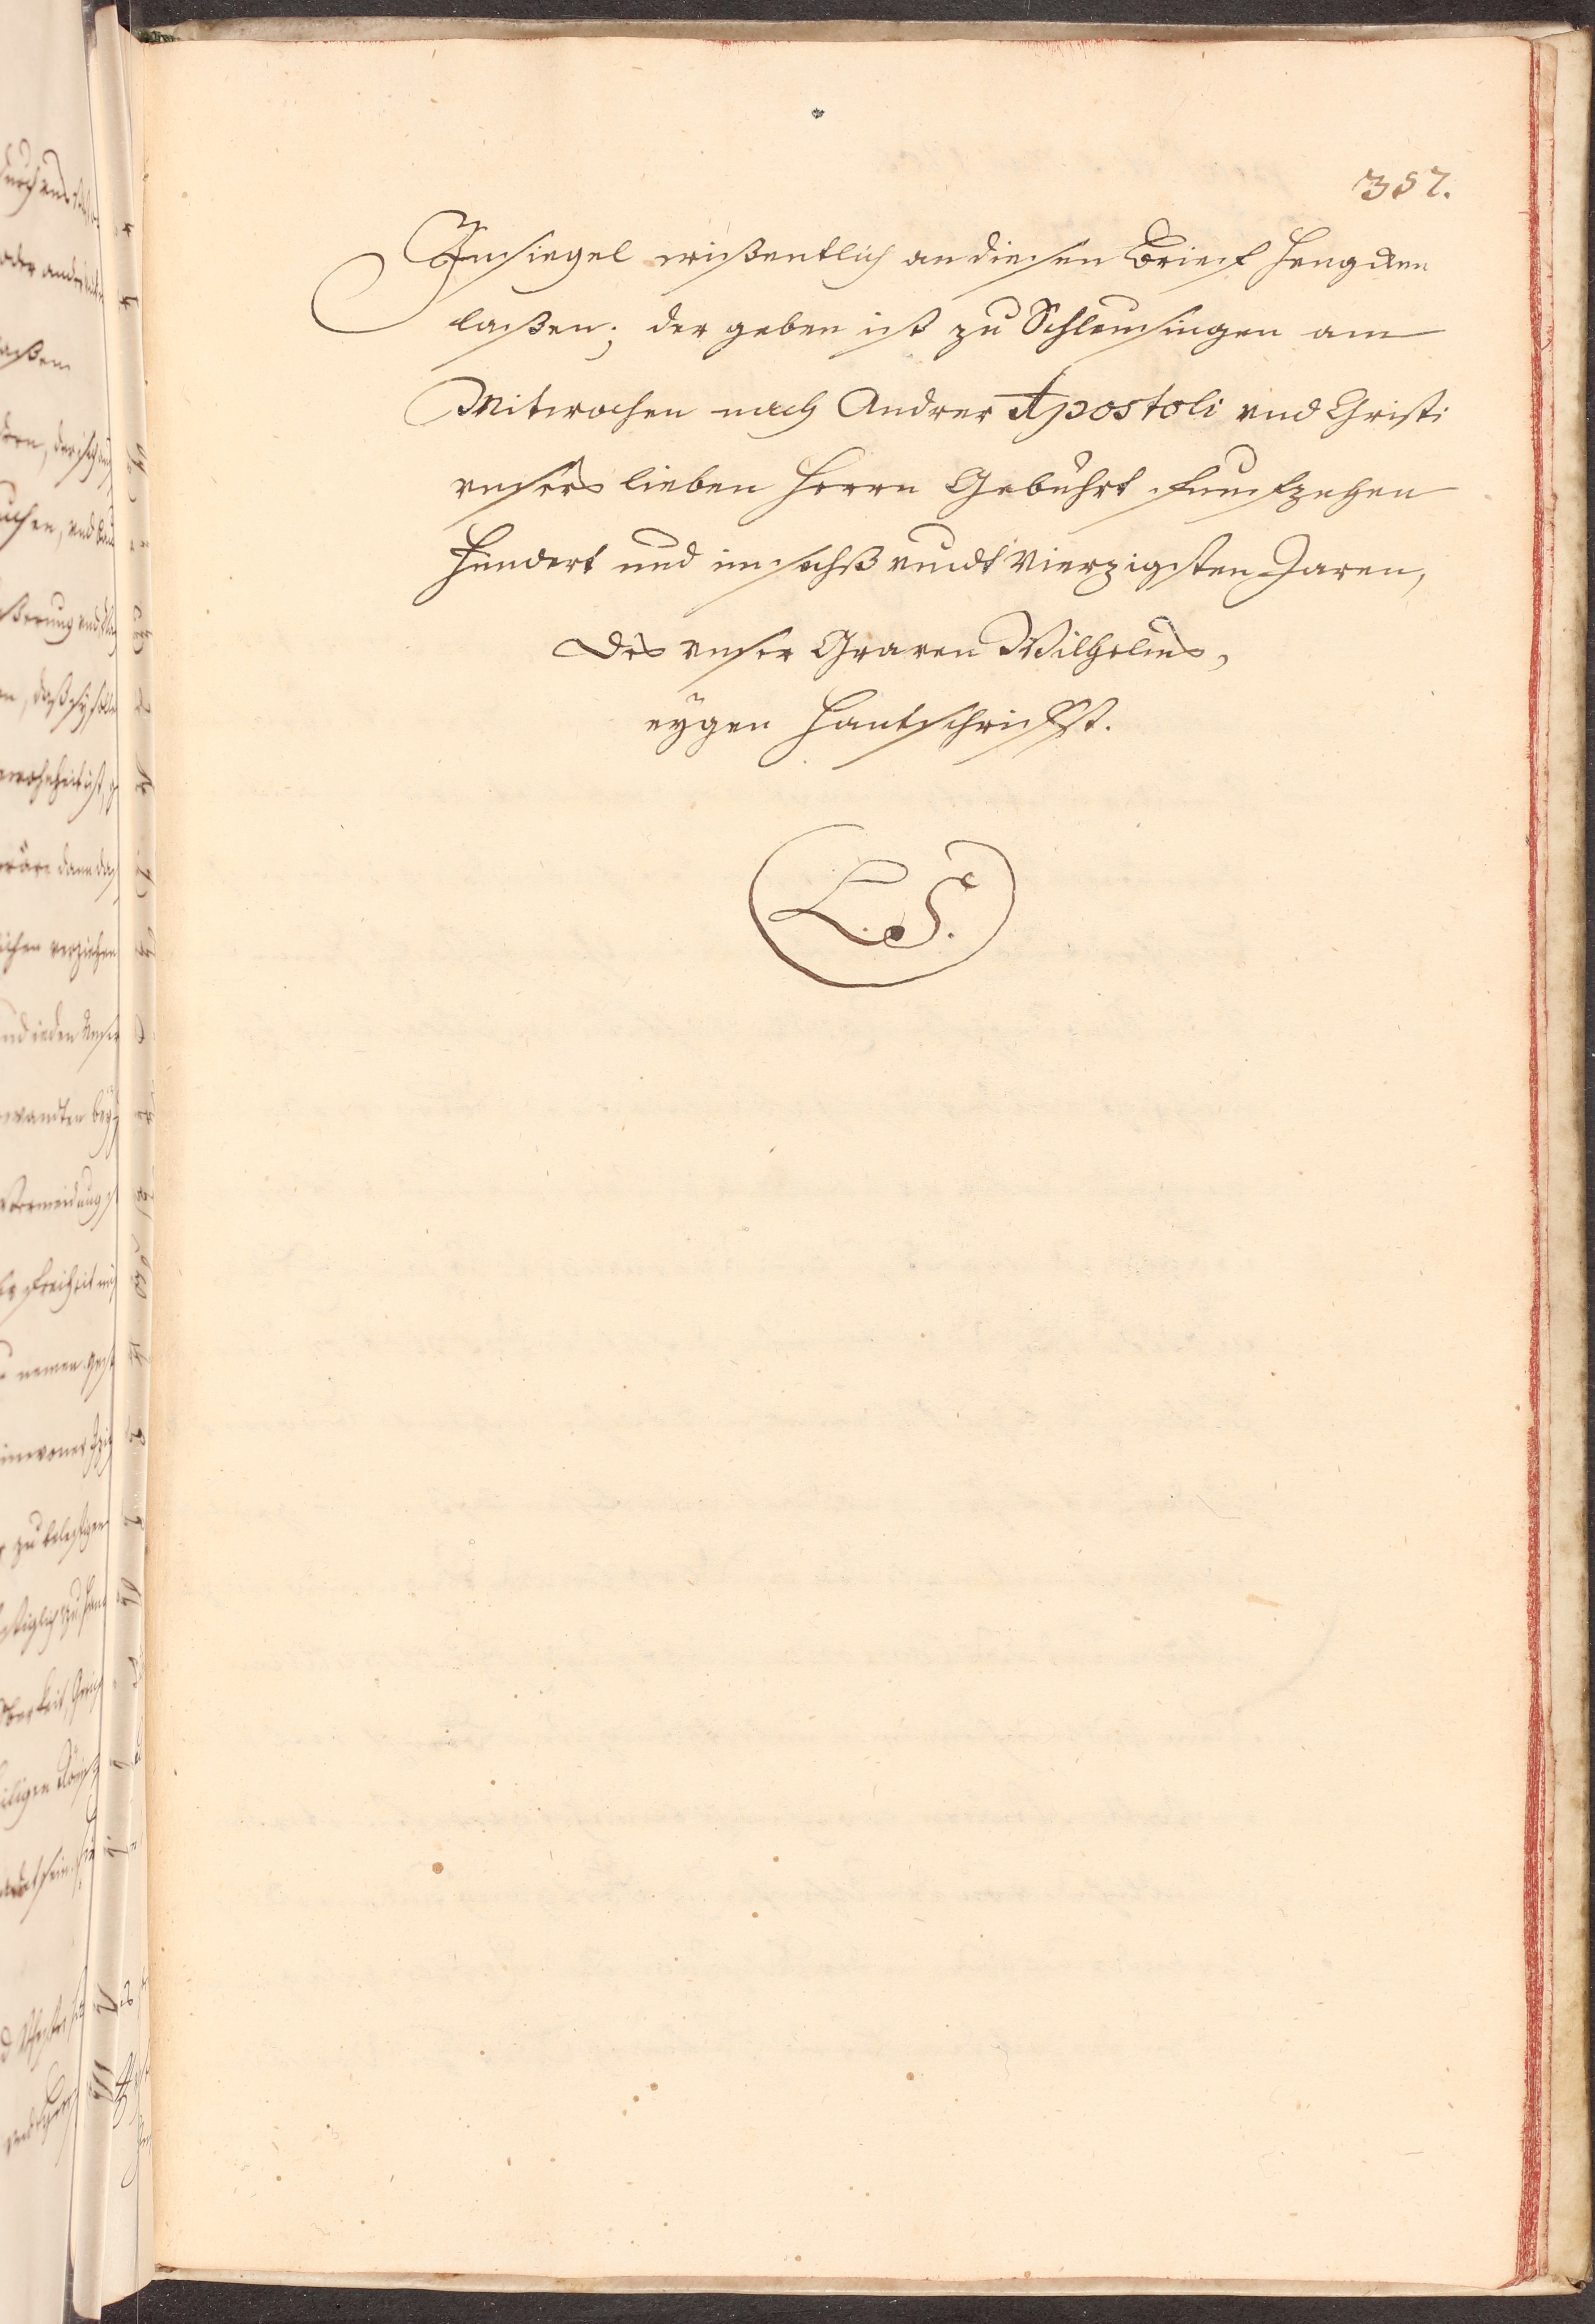 357.
Innsiegel wißentlich an diesen Brief hengken
laßen; der geben ist zu Schleusingen am
Mitwochen nach Andreæ Apostoli vnd Christi
vnsers lieben Herrn Gebuhrt funfzehen
Hundert und im sechß vndt Vierzigsten Jaren,
Des vnser Graven Wilhelms,
eygen Hantschrifft.
L. S.